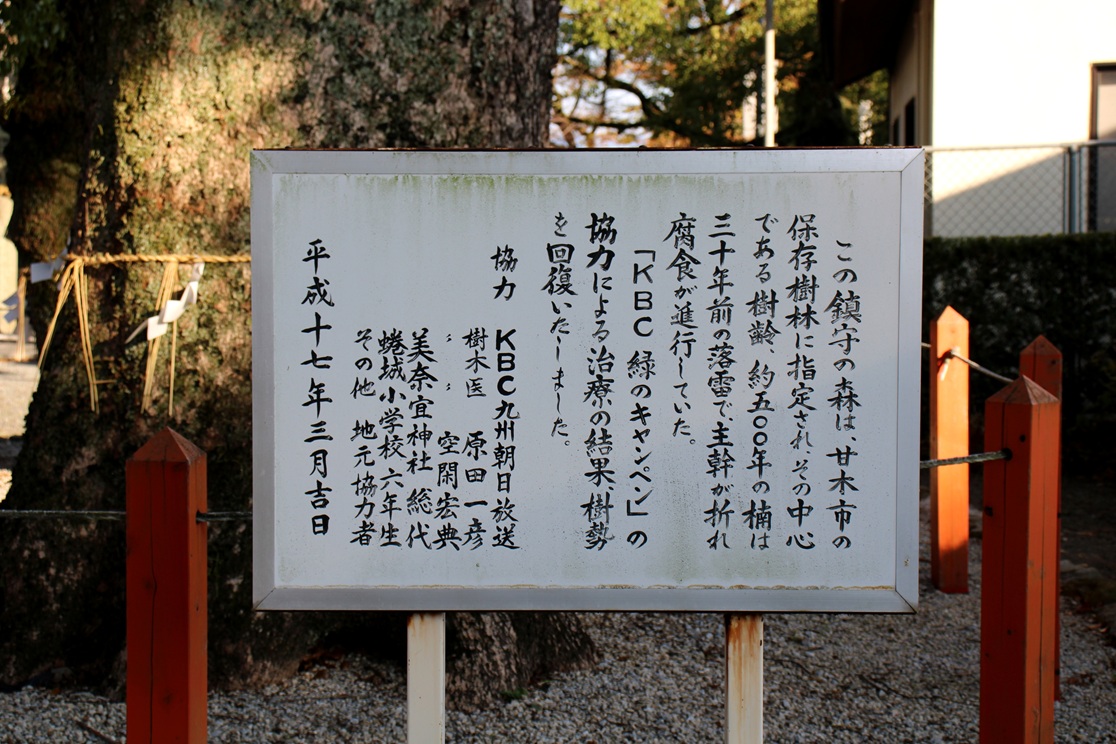 この鎮守の森は、甘木市の
保存樹林に指定され、その中心
である樹齢、約五〇〇年の楠は
三十年前の落雷で、主幹が折れ
腐食が進行していた。
「KBC 緑のキャンペン」の
協力による治療の結果、樹勢
を回復いたしました。
協力 KBC九州朝日放送
樹木医 原田一彦
〃 〃 空閑宏典
美奈宜神社 総代
蜷城小学校 六年生
その他 地元協力者
平成十七年三月吉日